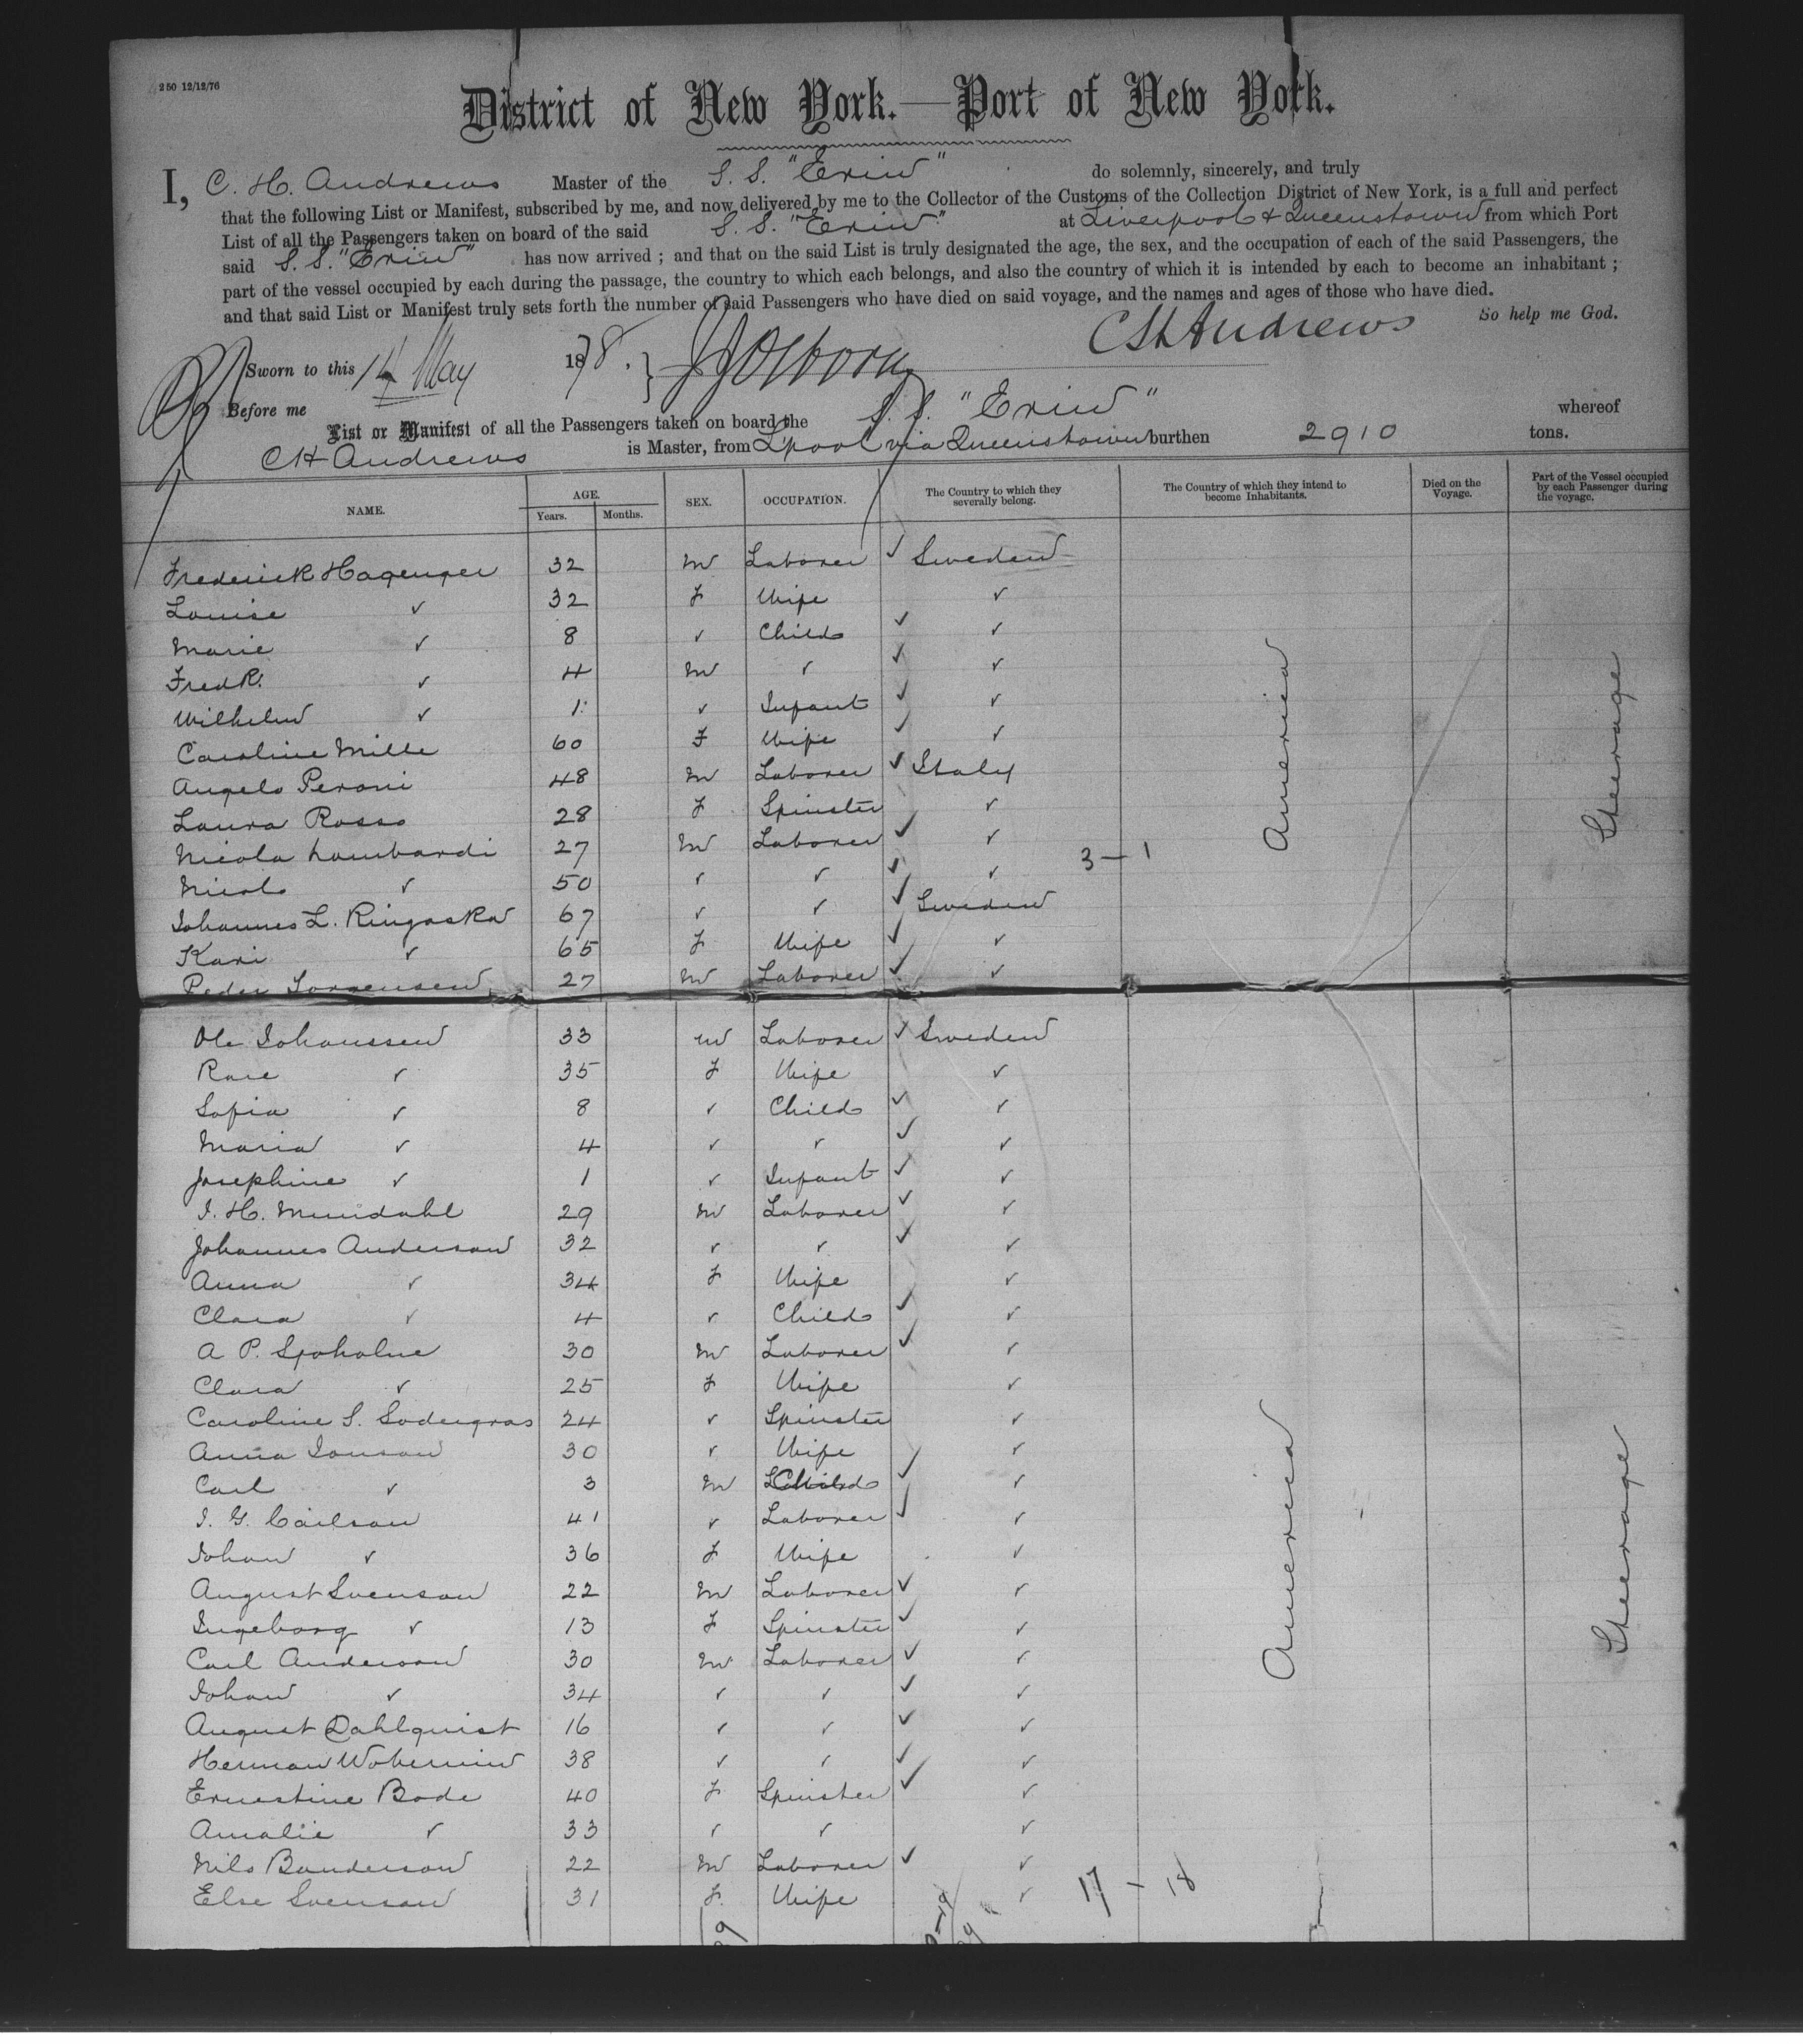 250 12/12/76
District of New York.—Port of New York.
I, C. H. Andrews Master of the S. S. "Erin" do solemnly, sincerely, and truly
that the following List or Manifest, subscribed by me, and now delivered by me to the Collector of the Customs of the Collection District of New York, is a full and perfect
List of all the Passengers taken on board of the said S. S. "Erin" at Liverpool & Queenstown from which Port
said S. S. "Erin" has now arrived; and that on the said List is truly designated the age, the sex, and the occupation of each of the said Passengers, the
part of the vessel occupied by each during the passage, the country to which each belongs, and also the country of which it is intended by each to become an inhabitant;
and that said List or Manifest truly sets forth the number of said Passengers who have died on said voyage, and the names and ages of those who have died.
So help me God.
C H Andrews
Sworn to this 14 May 1878. } Osborn
Before me
List or Manifest of all the Passengers taken on board the S. S. "Erin" whereof
C H Andrews is Master, from L'pool via Queenstown burthen 2910 tons.
NAME. AGE. Years. Months. SEX. OCCUPATION. The Country to which they severally belong. The Country of which they intend to become Inhabitants. Died on the Voyage. Part of the Vessel occupied by each Passenger during the voyage.
Frederick Hagenger 32 m Laborer ✓ Sweden
Louise ✓ 32 f Wife ✓
Marie ✓ 8 ✓ Child ✓ ✓
Fredk. ✓ 4 m ✓ ✓ ✓
Wilhelm ✓ 1 ✓ Infant ✓ ✓
Caroline Mille 60 F Wife ✓ ✓
Angelo Peroni 48 m Laborer ✓ Italy
Laura Rosso 28 f Spinster ✓
Nicola Lombardi 27 m Laborer ✓ ✓
3 — 1
Nicolo ✓ 50 ✓ ✓ ✓ ✓
Johannes L. Ringaskar 67 ✓ ✓ ✓ Sweden
Kari ✓ 65 f Wife ✓ ✓
Peder Jorgensen 27 m Laborer ✓ ✓
America
Steerage
Ole Johanssen 33 m Laborer ✓ Sweden
Rare ✓ 35 f Wife ✓
Sofia ✓ 8 ✓ Child ✓ ✓
Maria ✓ 4 ✓ ✓ ✓ ✓
Josephine ✓ 1 ✓ Infant ✓ ✓
J. H. Mundahl 29 m Laborer ✓ ✓
Johannes Anderson 32 ✓ ✓ ✓ ✓
Anna ✓ 34 f Wife ✓
Clara ✓ 4 ✓ Child ✓ ✓
A P. Spoholne 30 m Laborer ✓ ✓
Clara ✓ 25 f Wife ✓
Caroline S. Sodergras 24 ✓ Spinster ✓
Anna Jonson 30 ✓ Wife ✓
Carl ✓ 3 m Child ✓ ✓
J. G. Carlson 41 ✓ Laborer ✓ ✓
Johan ✓ 36 f Wife ✓
August Svenson 22 m Laborer ✓ ✓
Ingeborg ✓ 13 f Spinster ✓ ✓
Carl Anderson 30 m Laborer ✓ ✓
Johan ✓ 34 ✓ ✓ ✓ ✓
August Dahlquist 16 ✓ ✓ ✓ ✓
Herman Wobernin 38 ✓ ✓ ✓ ✓
Ernestine Bode 40 f Spinster ✓ ✓
Amalie ✓ 33 ✓ ✓ ✓
Nils Banderson 22 m Laborer ✓ ✓
Else Svenson 31 f. Wife ✓
17 — 18
America
Steerage